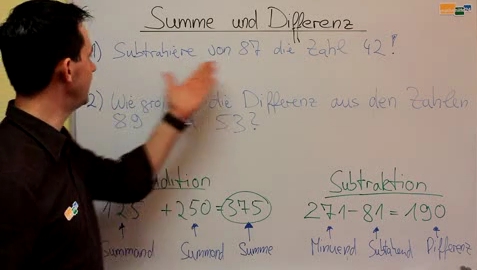 Summe und Differenz
1) Subtrahiere von 87 die Zahl 42!
2) Wie die Differenz aus den Zahlen
89 53?
Subtraktion
125 + 250 = 375
271 - 81 = 190
Summand Summand Summe
Minuend Subtrahend Differenz